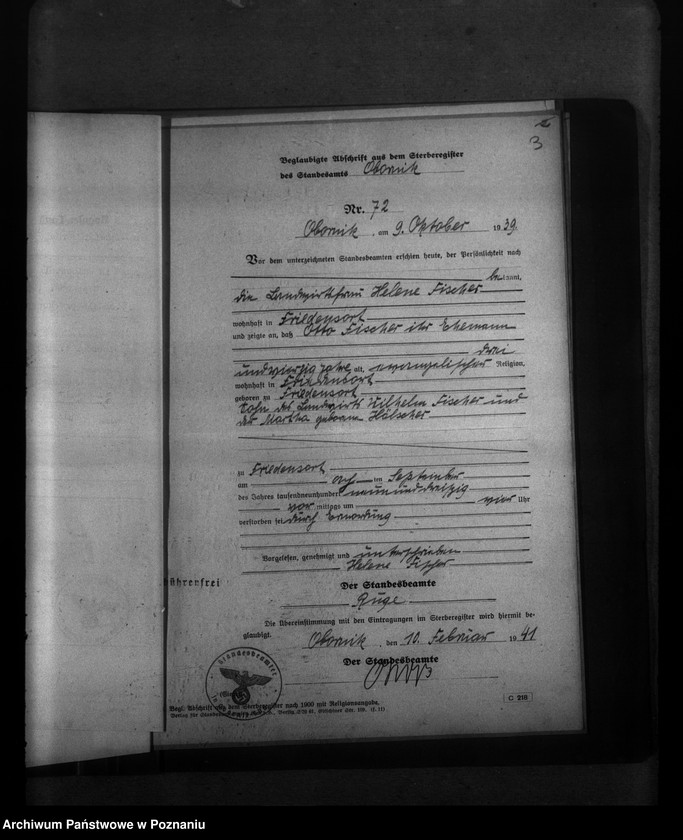 3
Beglaubigte Abschrift aus dem Sterberegister
des Standesamts Obornik
Nr. 72
Obornik, am 9. Oktober 1939
Vor dem unterzeichneten Standesbeamten erschien heute, der Persönlichkeit nach
bekannt,
die Landwirtsfrau Helene Fischer
wohnhaft in Friedensort
und zeigte an, daß Otto Fischer ihr Ehemann
drei
undvierzig Jahre alt, evangelischer Religion,
wohnhaft in Friedensort
geboren zu Friedensort
Sohn des Landwirts Wilhelm Fischer und
der Martha geboren Hölscher
zu Friedensort
am acht ten September
des Jahres tausendneunhundert neununddreißig
vor mittags um vier Uhr
verstorben sei durch Ermordung
Vorgelesen, genehmigt und unterschrieben
Helene Fischer
Der Standesbeamte
Ruge
Die Übereinstimmung mit den Eintragungen im Sterberegister wird hiermit be-
glaubigt.
Obornik, den 10. Februar 1941
Der Standesbeamte
ührenfrei
Standesbeamter
Begl. Abschrift aus dem Sterberegister nach 1900 mit Religionsangabe.
Verlag für Standesamtswesen Berlin SW 61, Gitschiner Str. 109.
C 218
Archiwum Państwowe w Poznaniu